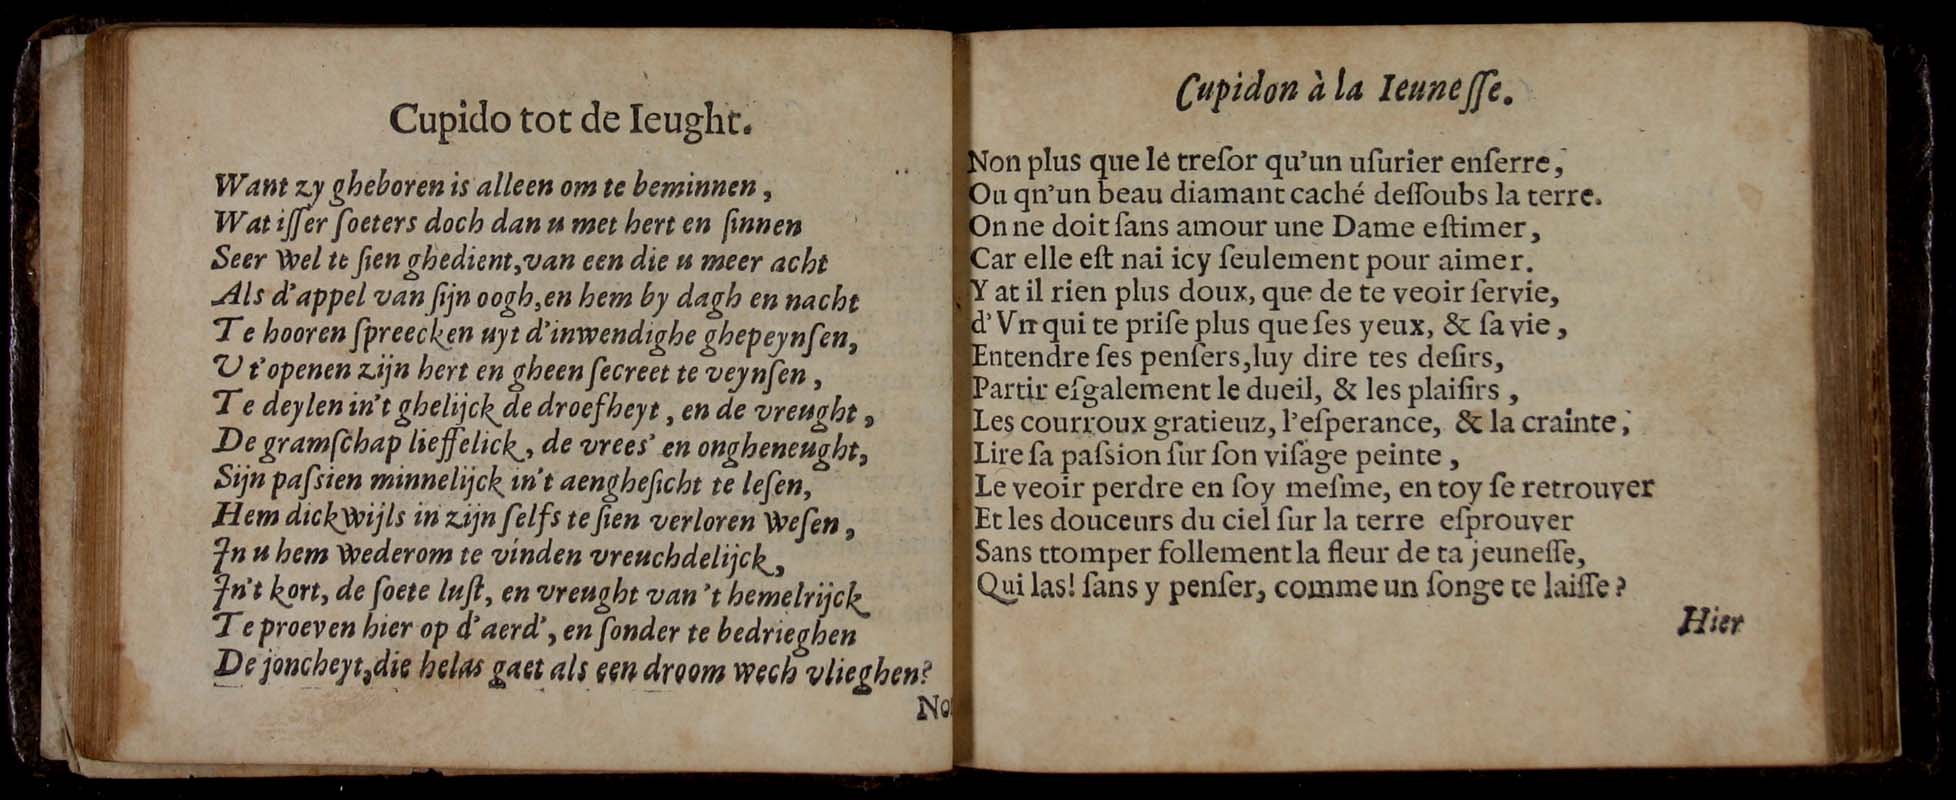 Cupido tot de Ieught.
Want zy gheboren is alleen om te beminnen,
Wat iſſer ſoeters doch dan u met hert en ſinnen
Seer wel te ſien ghedient, van een die u meer acht
Als d'appel van ſijn oogh, en hem by dagh en nacht
Te hooren ſpreecken uyt d'inwendighe ghepeynſen,
U t'openen zijn hert en gheen ſecreet te veynſen,
Te deylen in't ghelijck de droefheyt, en de vreught,
De gramſchap lieffelick, de vrees' en ongheneught,
Sijn paſsien minnelijck in't aengheſicht te leſen,
Hem dickwijls in zijn ſelfs te ſien verloren weſen,
In u hem wederom te vinden vreuchdelijck,
In't kort, de ſoete luſt, en vreught van 't hemelrijck
Te proeven hier op d'aerd', en ſonder te bedrieghen
De joncheyt, die helas gaet als een droom wech vlieghen?
No
Cupidon à la Ieuneſſe.
Non plus que le treſor qu'un uſurier enſerre,
Ou qn'un beau diamant caché deſſoubs la terre.
On ne doit ſans amour une Dame eſtimer,
Car elle eſt nai icy ſeulement pour aimer.
Y at il rien plus doux, que de te veoir ſervie,
d'Vn qui te priſe plus que ſes yeux, & ſa vie,
Entendre ſes penſers, luy dire tes deſirs,
Partir eſgalement le dueil, & les plaiſirs,
Les courroux gratieuz, l'eſperance, & la crainte,
Lire ſa paſsion ſur ſon viſage peinte,
Le veoir perdre en ſoy meſme, en toy ſe retrouver
Et les douceurs du ciel ſur la terre eſprouver
Sans ttomper follement la fleur de ta jeuneſſe,
Qui las! ſans y penſer, comme un ſonge te laiſſe?
Hier